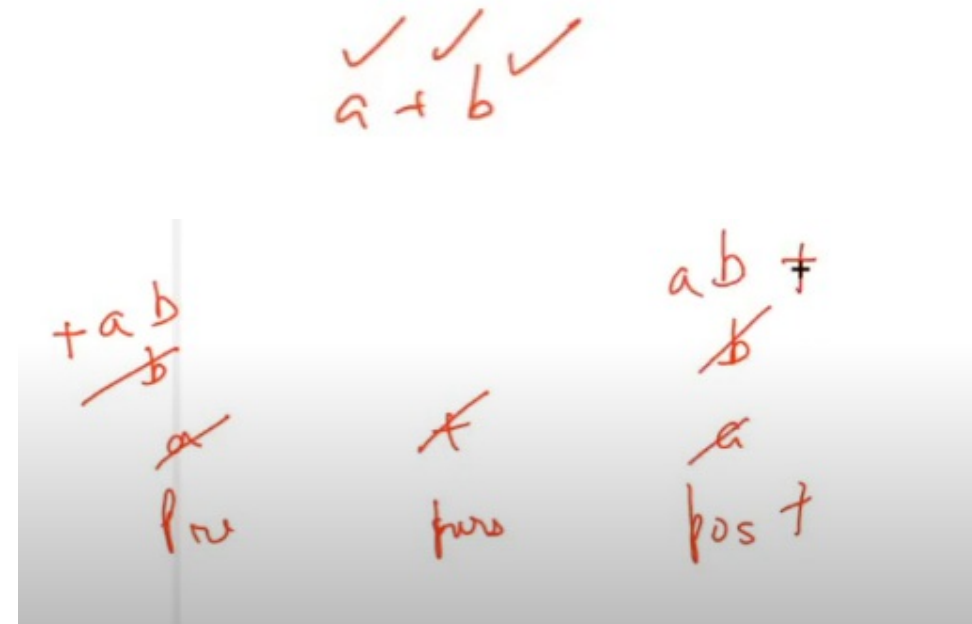 a + b
ab +
+ab
b
b
a
+
a
Pre
post